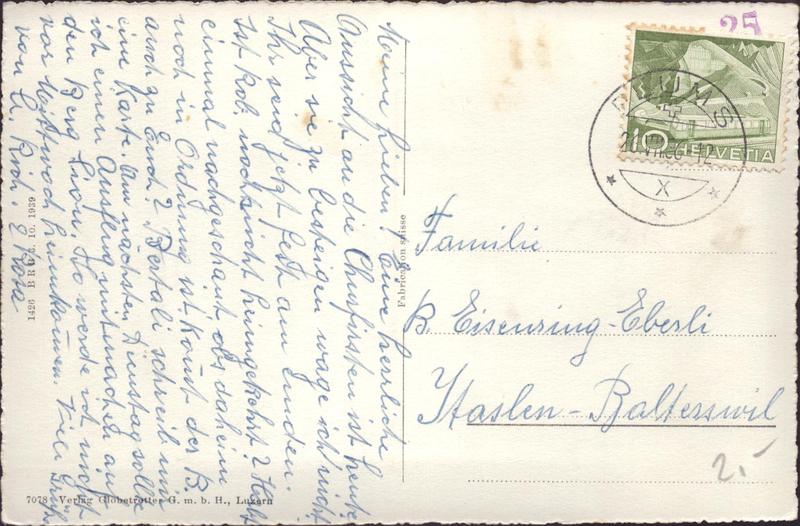 Meine Lieben! Eine herrliche
Aussicht an die Churfirsten ist heute
Aber sie zu besteigen wage ich nicht
Ihr seid jetzt fest am
Ist Rob. noch nicht heimgekehrt? Hast
einmal nachgeschaut obs daheim
noch in Ordnung ist. Kommt der B.
auch zu Euch? Bertali schreib mir
eine Karte. Am nächsten Dienstag sollte
ich einen Ausflug mitmachen auf
den Berg So werde ich nicht
vor Mittwoch heimkommen. Viele Grüße
von
1426 BRUG. 10. 1939
7078 Verlag Globetrotter G. m. b. H., Luzern
Fabrication suisse
25
FLUMS
12
X
10 HELVETIA
Familie
B. Eisenring-Eberli
Itaslen-Balterswil
2.-